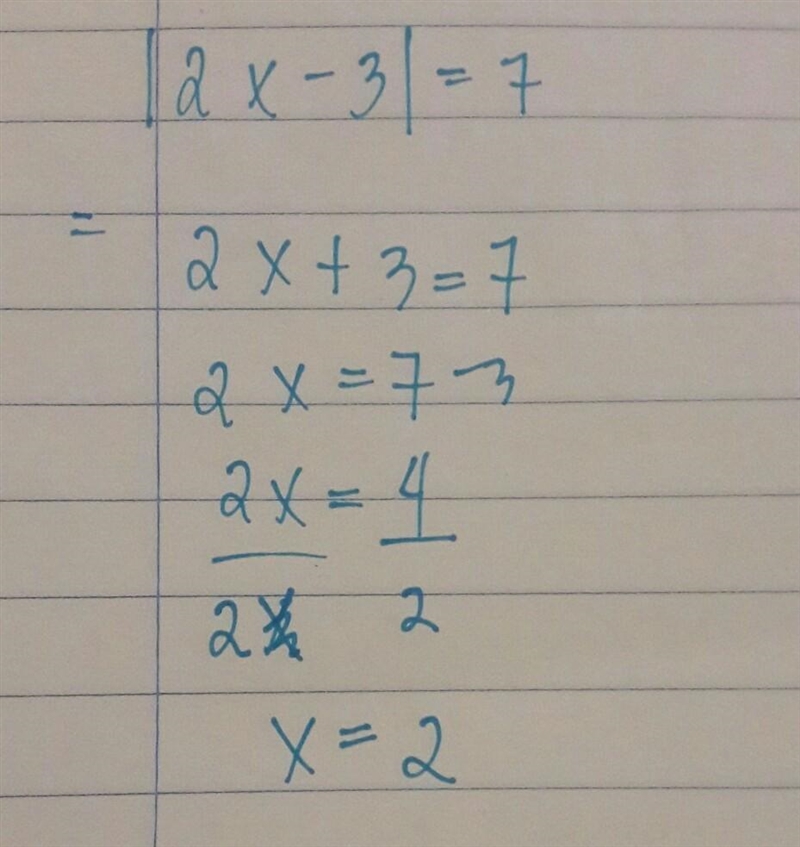 |2x-3| = 7
= 2x+3=7
2x=7-3
2x = 4
2 2
x = 2